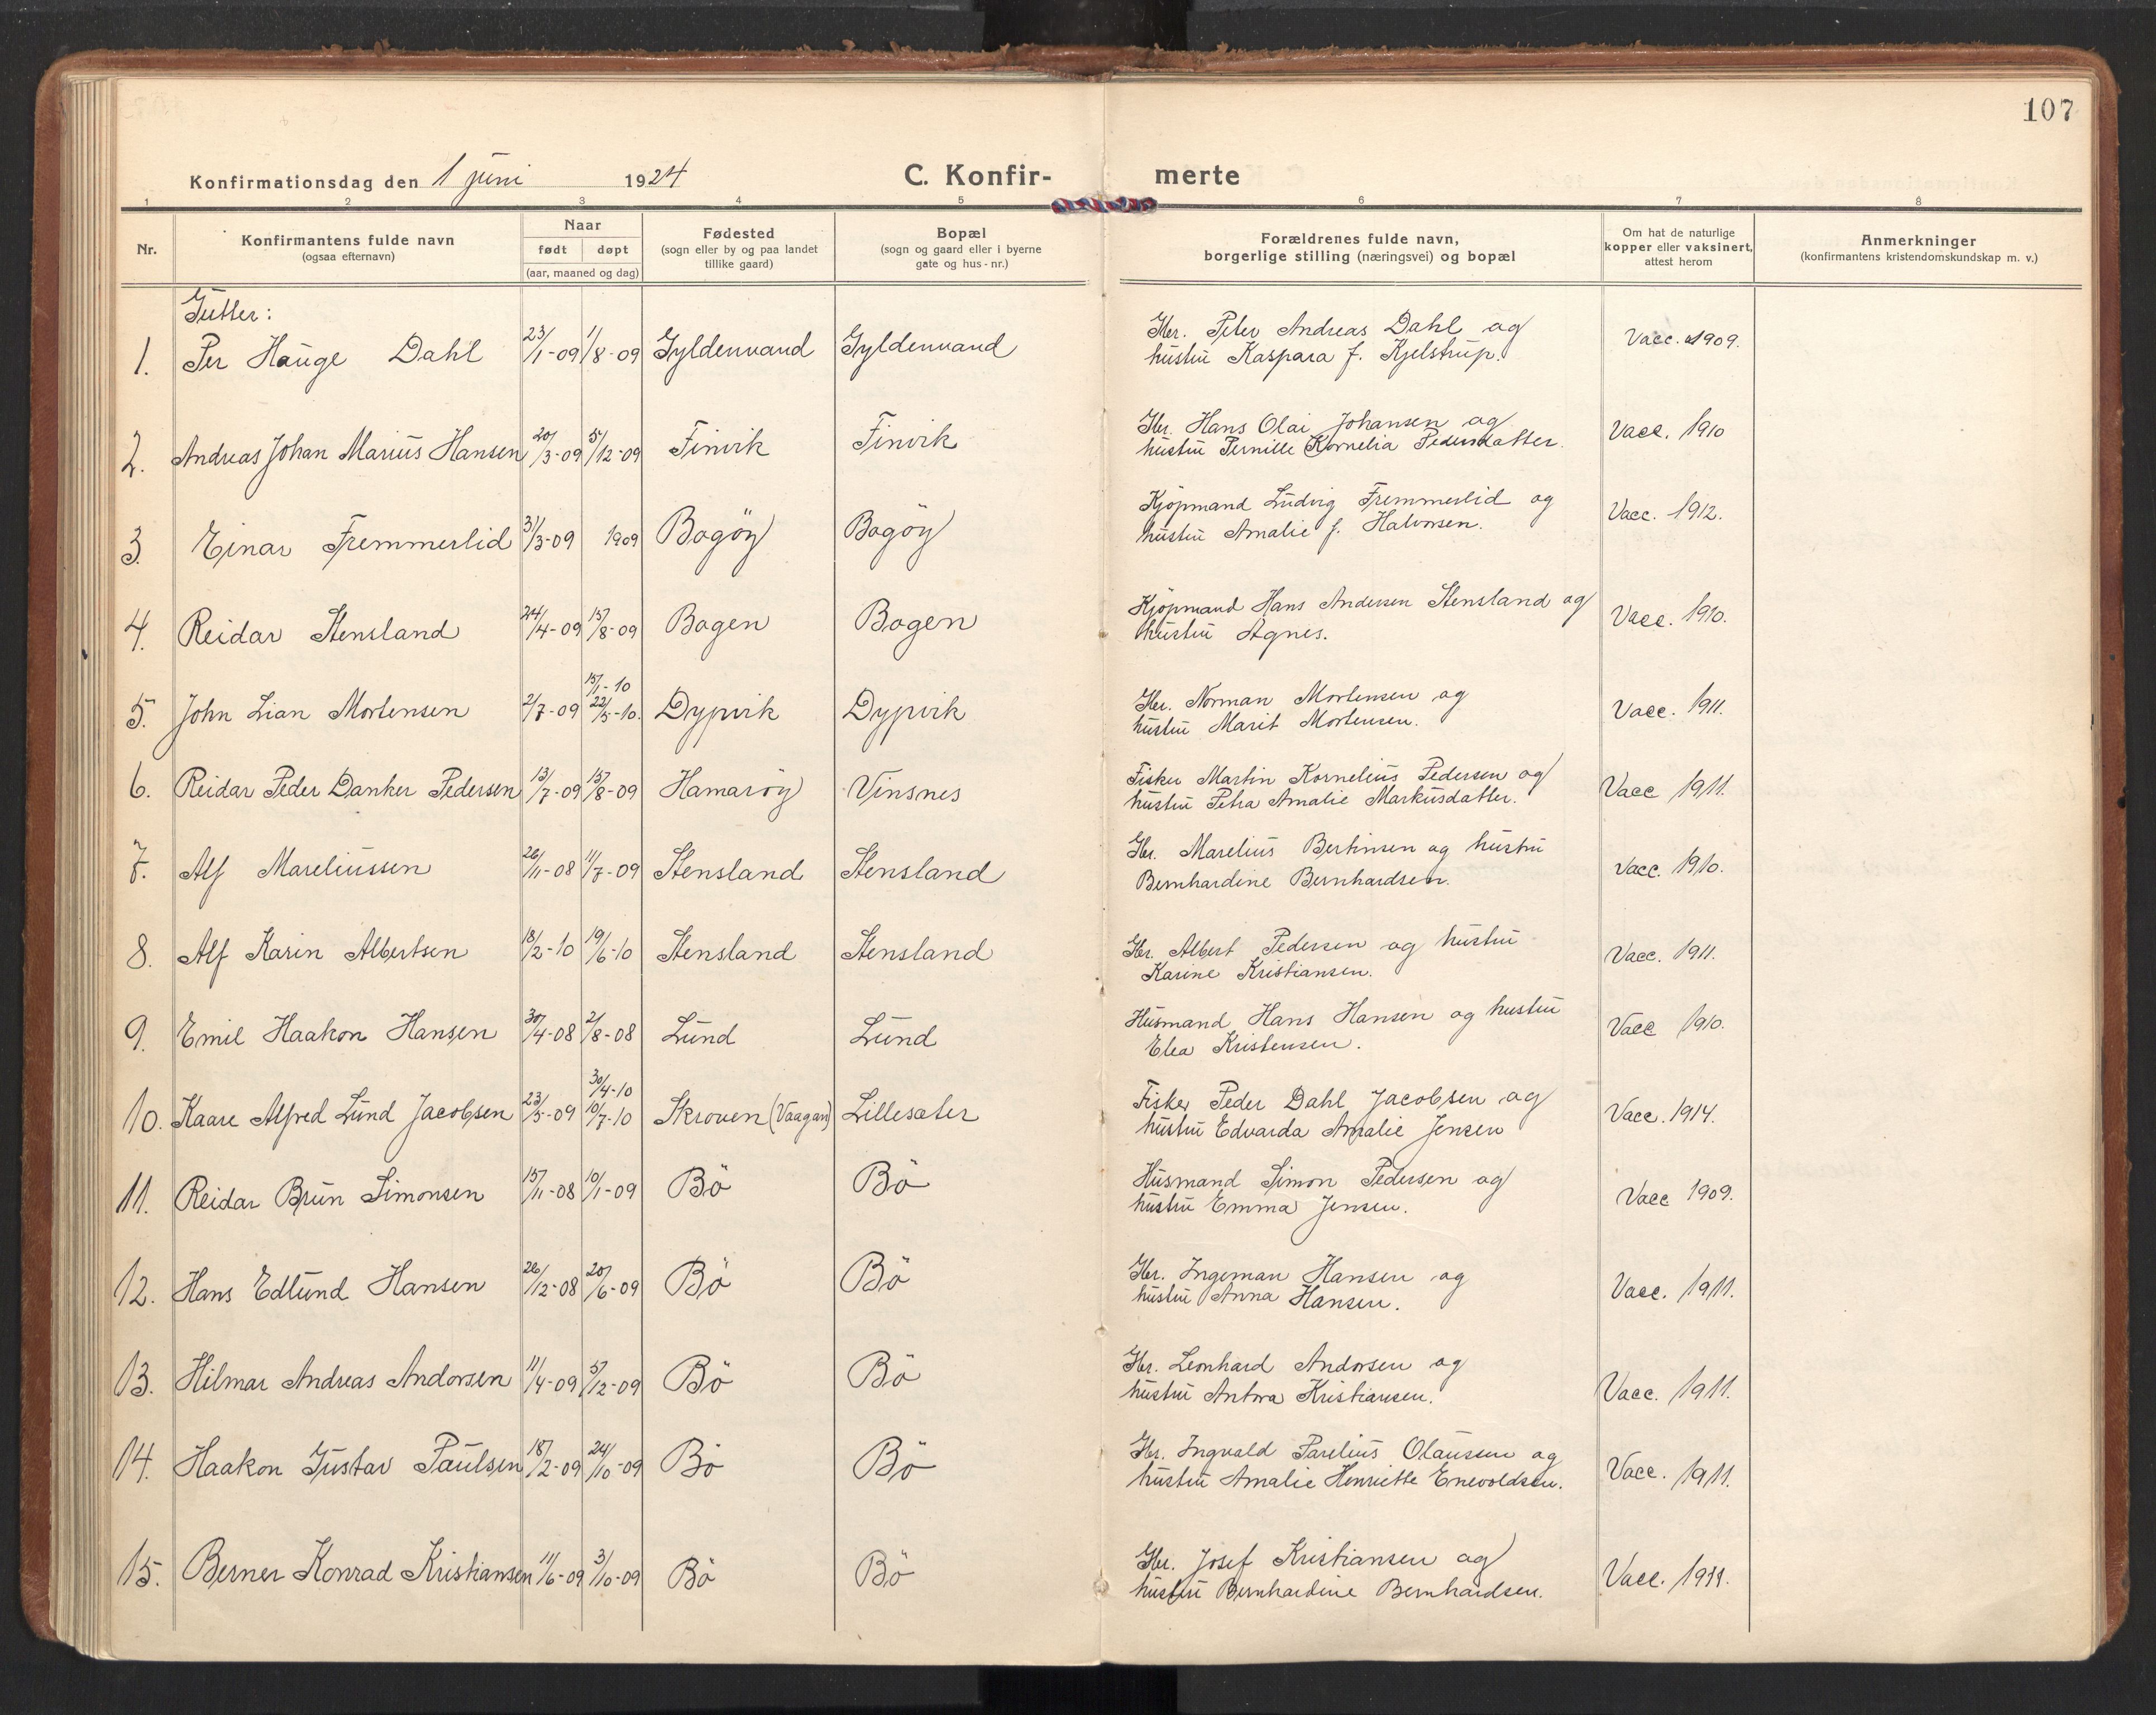 107
Konfirmationsdag den 1 juni 1924 C. Konfir- merte
1 2 3 4 5 6 7 8
Nr.
Konfirmantens fulde navn
(ogsaa efternavn)
Naar
født døpt
(aar, maaned og dag)
Fødested
(sogn eller by og paa landet
tillike gaard)
Bopæl
(sogn og gaard eller i byerne
gate og hus-nr.)
Forældrenes fulde navn,
borgerlige stilling (næringsvei) og bopæl
Om hat de naturlige
kopper eller vaksinert,
attest herom
Anmerkninger
(konfirmantens kristendomskundskap m. v.)
Gutter:
1. Per Hauge Dahl 23/1-09 1/8-09 Gyldenvand Gyldenvand Gbr. Peter Andreas Dahl og
hustru Kaspara f. Kjelstrup. Vacc. 1909.
2. Andreas Johan Marius Hansen 20/3-09 5/12-09 Finvik Finvik Gbr. Hans Olai Johansen og
hustru Pernille Kornelia Pedersdatter. Vacc. 1910
3 Einar Fremmerlid 31/3-09 1909 Bogöy Bogöy Kjöpmand Ludvig Fremmerlid og
hustru Amalie f. Halvorsen. Vacc. 1912.
4. Reidar Stensland 24/4-09 15/8-09 Bogen Bogen Kjöpmand Hans Andersen Stensland og
hustru Agnes. Vacc. 1910.
15/1-10
5. John Lian Mortensen 2/7-09 22/5-10. Dypvik Dypvik Gbr. Norman Mortensen og
hustru Marit Mortensen. Vacc. 1911.
6. Reidar Peder Danker Pedersen 13/7-09 15/8-09 Hamaröy Vinsnes Fisker Martin Kornelius Pedersen og
hustru Petra Amalie Markusdatter. Vacc 1911.
7. Alf Mareliussen 26/11-08 11/7-09 Stensland Stensland Gbr. Marelius Bertinsen og hustru
Bernhardine Bernhardsen. Vacc. 1910.
8. Alf Karin Albertsen 18/2-10 19/6-10 Stensland Stensland Gbr. Albert Pedersen og hustru
Karine Kristiansen. Vacc. 1911.
9. Emil Haakon Hansen 30/4-08 2/8-08 Lund Lund Husmand Hans Hansen og hustru
Elea Kristensen. Vacc 1910.
30/4-10
10. Kaare Alfred Lund Jacobsen 23/5-09 10/7-10 Skroven (Vaagan) Lillesæter Fisker Peder Dahl Jacobsen og
hustru Edvarda Amalie Jensen Vacc. 1914.
11. Reidar Brun Simonsen 15/11-08 10/1-09 Bö Bö Husmand Simon Pedersen og
hustru Emma Jensen. Vacc 1909.
12. Hans Edlund Hansen 26/12-08 20/6-09 Bö Bö Gbr. Ingeman Hansen og
hustru Anna Hansen. Vacc. 1911.
13. Hilmar Andreas Andorsen 11/4-09 5/12-09 Bö Bö Gbr. Leonhard Andorsen og
hustru Antora Kristiansen. Vacc. 1911.
14. Haakon Gustav Paulsen 18/2-09 24/10-09 Bö Bö Gbr. Ingvald Parelius Olausen og
hustru Amalie Henriette Enevoldsen. Vacc. 1911.
15. Berner Konrad Kristiansen 11/6-09 3/10-09 Bö Bö Gbr. Josef Kristiansen og
hustru Bernhardine Bernhardsen. Vacc. 1911.